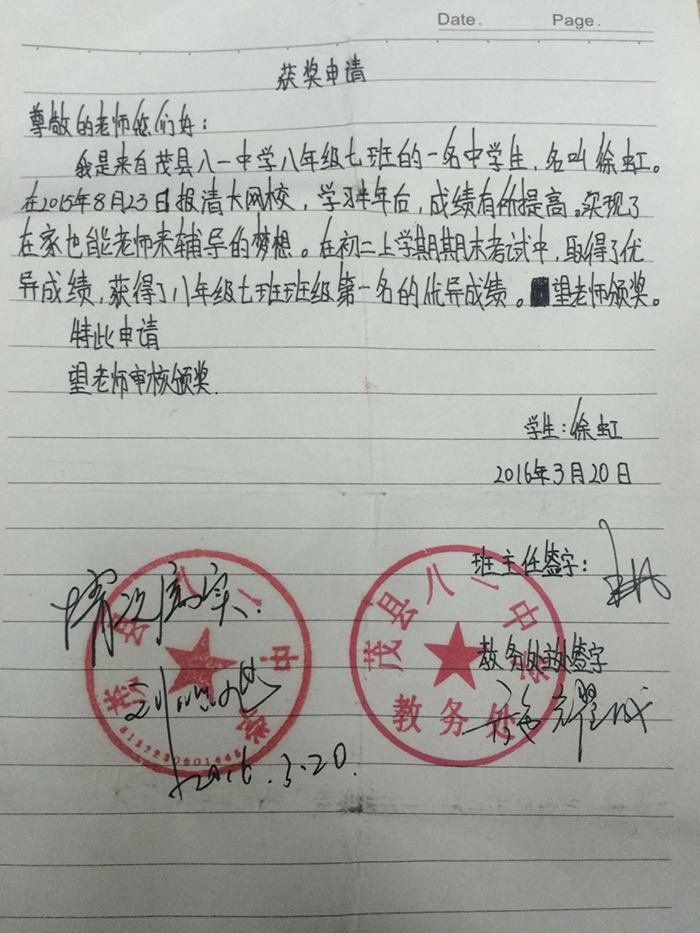 Date. Page.
获奖申请
尊敬的老师您们好:
我是来自茂县八一中学八年级七班的一名中学生,名叫徐虹。
在2015年8月23日报清大网校,学习半年后,成绩有所提高。实现了
在家也能老师来辅导的梦想。在初二上学期期末考试中,取得了优
异成绩,获得了八年级七班班级第一名的优异成绩。望老师颁奖。
特此申请
望老师审核颁奖.
学生:徐虹
2016年3月20日
班主任签字:
情况属实.
茂县八一中学
茂县八一中学
教务处
教务处主任签字
2016.3.20.